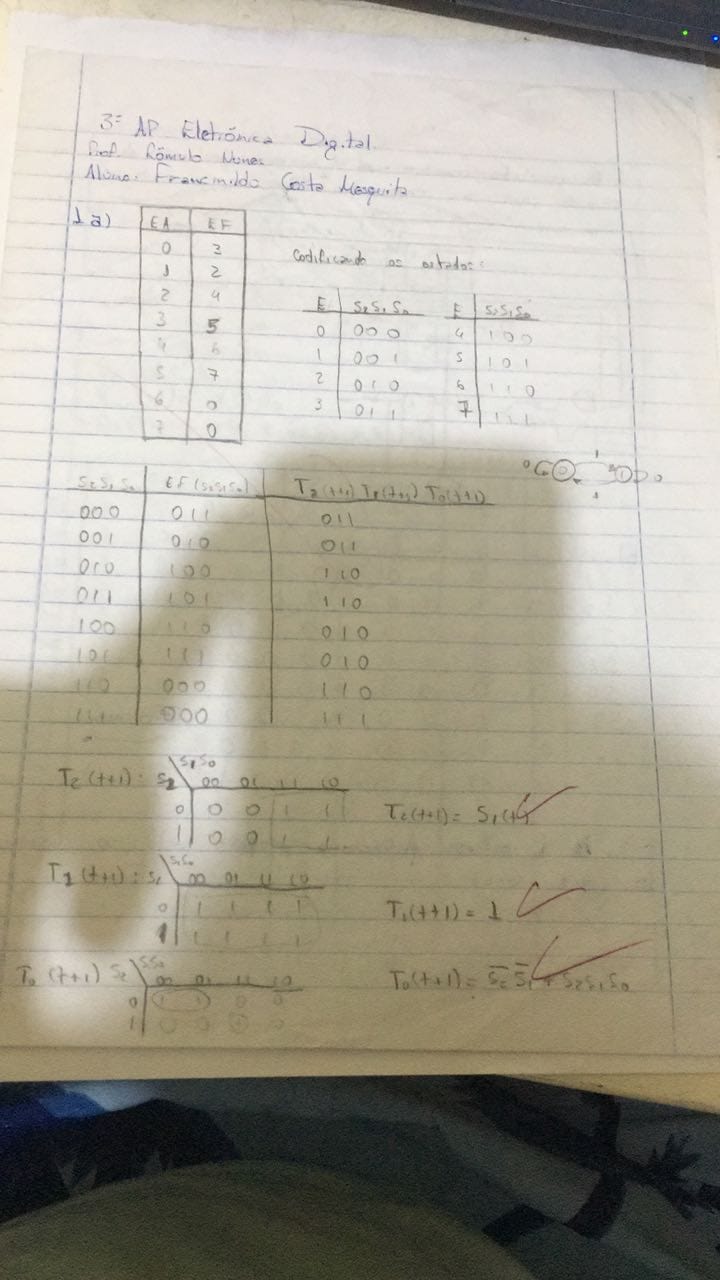 3ª AP Eletrônica Digital
Prof. Rômulo Nunes
Aluno: Francinildo Costa Mesquita
1a)
EA EF
0 3
1 2
2 4
3 5
4 6
5 7
6 0
7 0
Codificando os estados:
E S₂S₁S₀ E S₂S₁S₀
0 000 4 100
1 001 5 101
2 010 6 110
3 011 7 111
S₂S₁S₀ EF(S₂S₁S₀) T₂(t+1) T₁(t+1) T₀(t+1)
000 011 011
001 010 011
010 100 110
011 101 110
100 110 010
101 111 010
110 000 110
111 000 111
0 0 1 1 0
1
T₂(t+1): S₂ S₁S₀
00 01 11 10
0 0 0 1 1
1 0 0 1 1
T₂(t+1) = S₁(t)
T₁(t+1): S₂ S₁S₀
00 01 11 10
0 1 1 1 1
1 1 1 1 1
T₁(t+1) = 1
T₀(t+1) S₂ S₁S₀
00 01 11 10
0 1 1 0 0
1 0 0 1 0
T₀(t+1) = S̅₂ S̅₁ + S₂S₁S₀